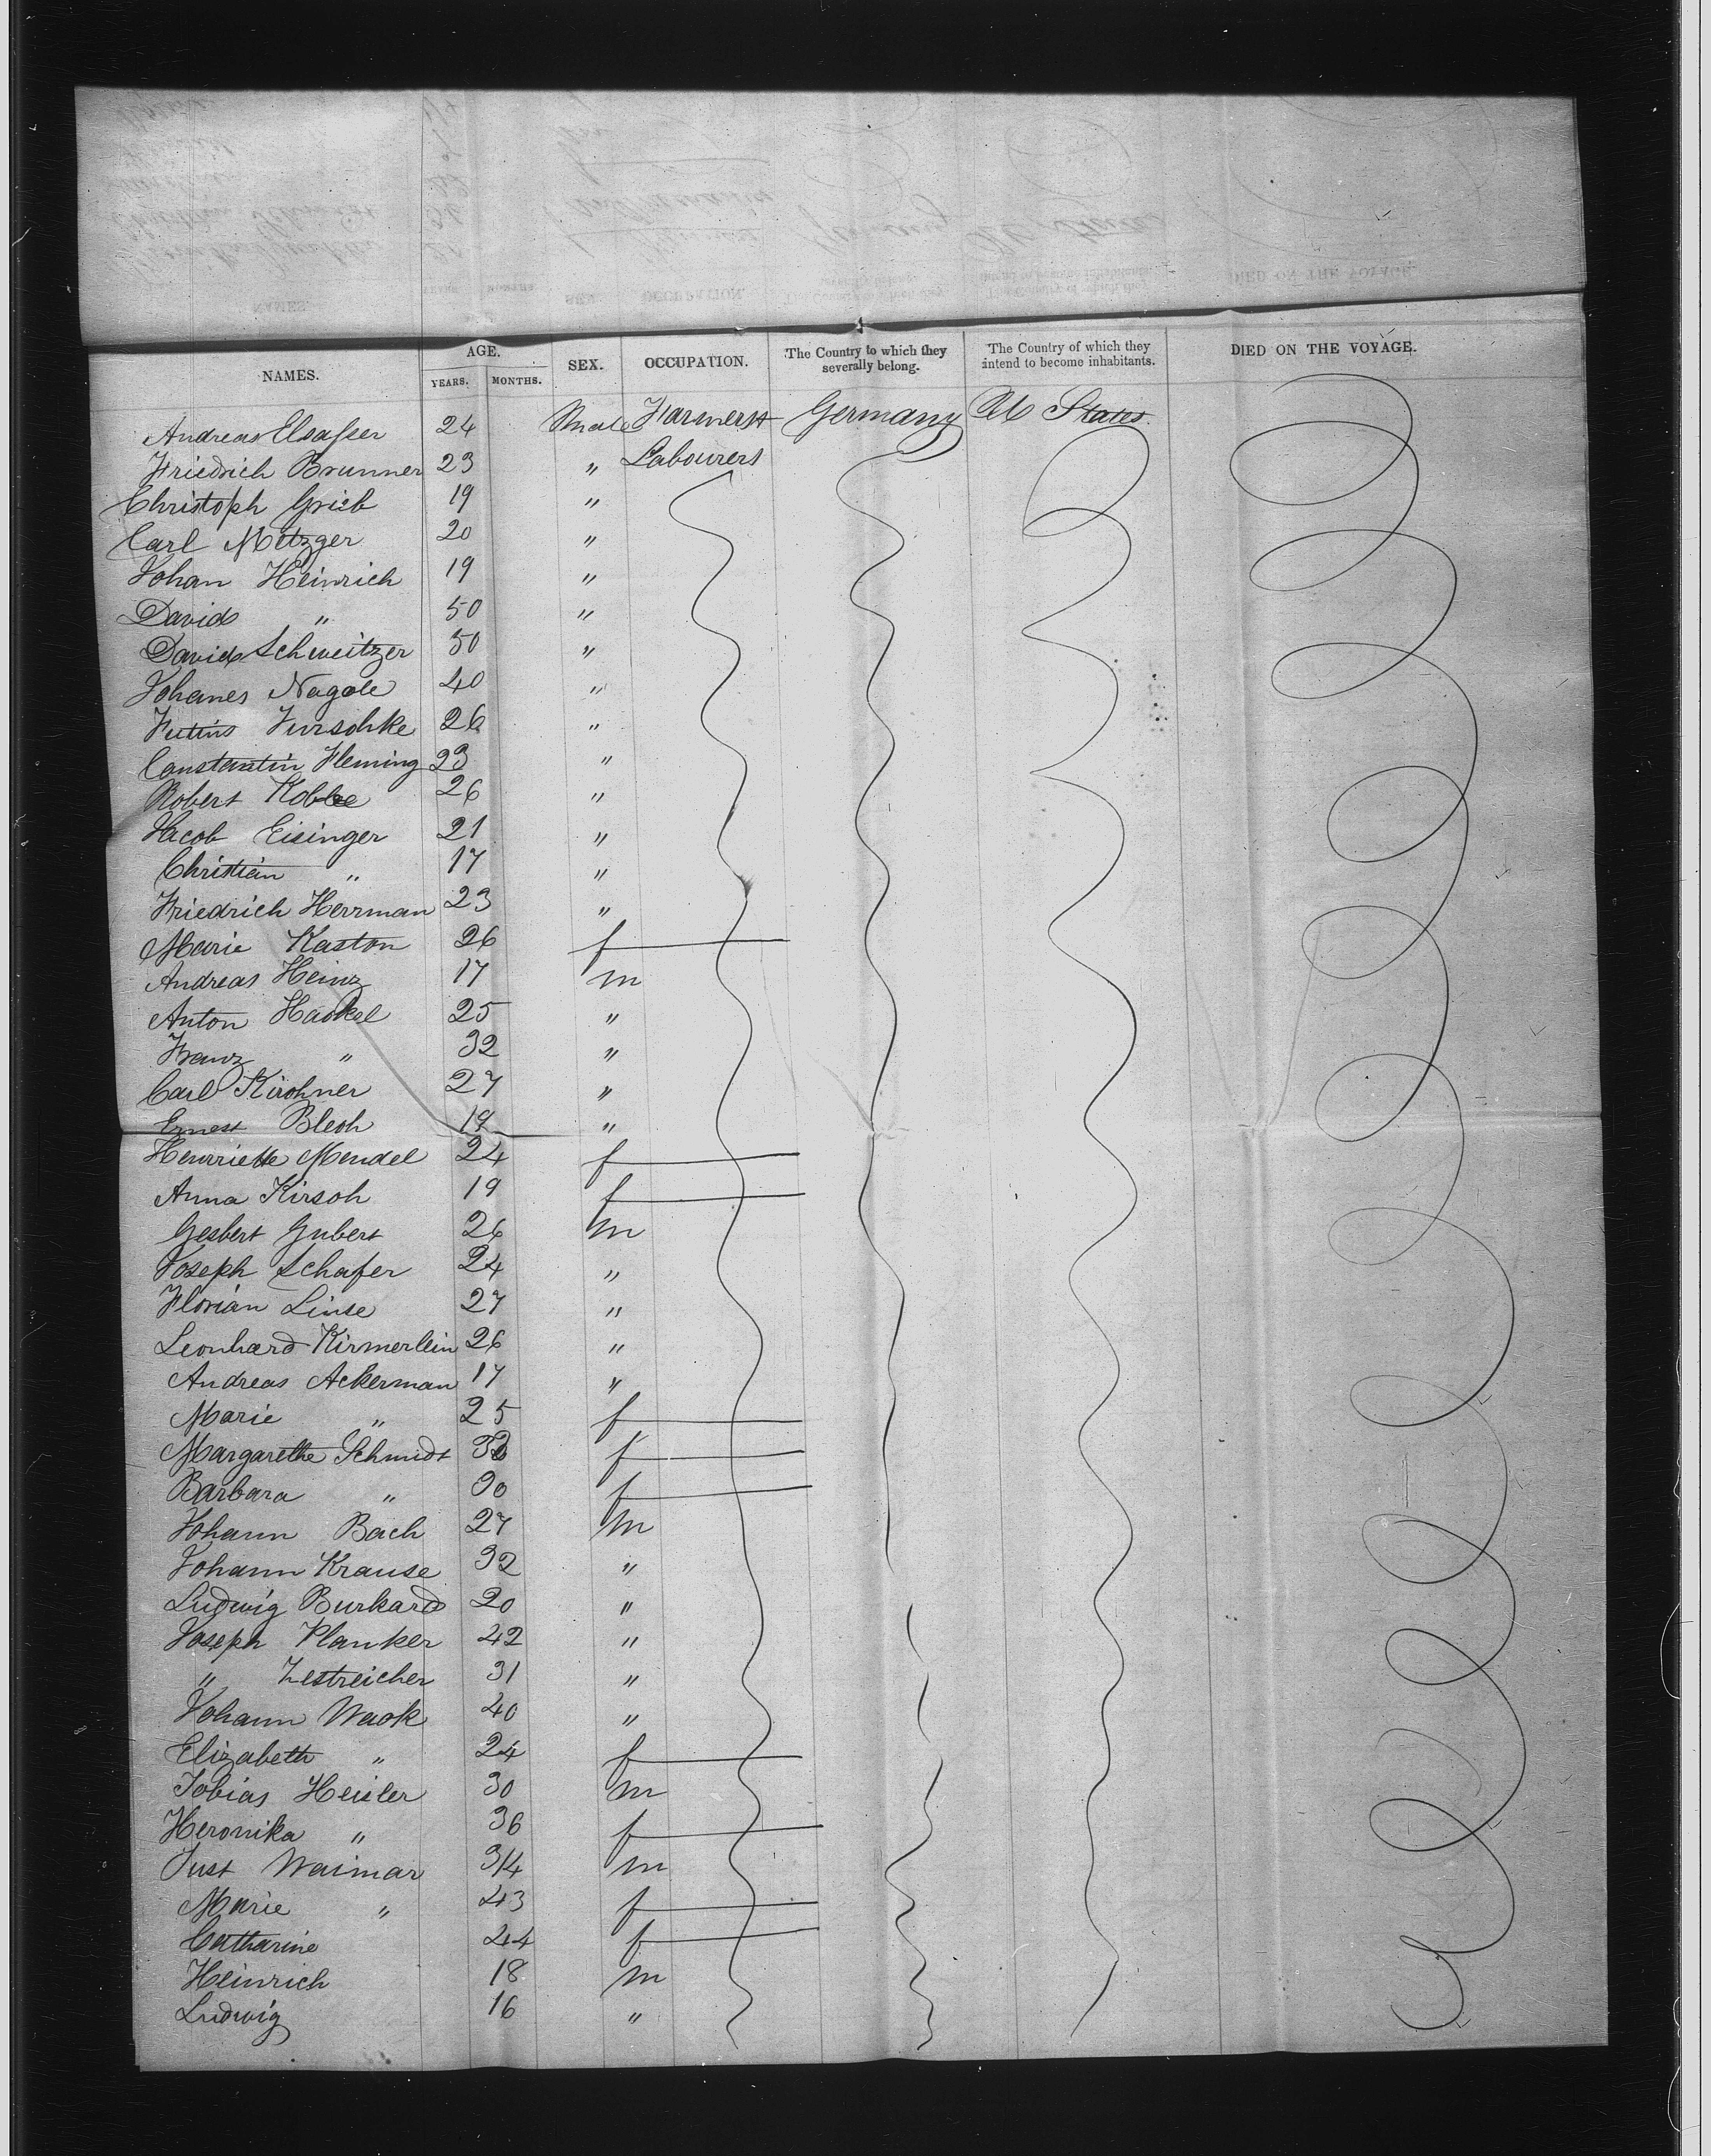 NAMES. AGE. SEX. OCCUPATION. The Country to which they severally belong. The Country of which they intend to become inhabitants. DIED ON THE VOYAGE.
YEARS. MONTHS.
Andreas Elsasser 24 Male Farmers & Germany U States
Friedrich Brunner 23 " Labourers
Christoph Grieb 19 "
Carl Metzger 20 "
Johan Heinrich 19 "
David " 50 "
David Schweitzer 50 "
Johanes Nagele 40 "
Jurschke 26 "
Constantin Fleming 23 "
Robert Koblee 26 "
Jacob Eisinger 21 "
Christian " 17 "
Friedrich Herrman 23 "
Marie Kaston 26 f
Andreas Heinz 17 m
Anton Hackel 25 "
Franz " 32 "
Carl Kirchner 27 "
Ernest Blech 19 "
Henriette Mendel 24 f
Anna Kirsch 19 f
Gesbert Gubert 26 m
Joseph Schafer 24 "
Florian Linse 27 "
Leonhard Kirmerlein 26 "
Andreas Ackerman 17 "
Marie " 25 f
Margarethe Schmidt f
Barbara " 30 f
Johann Bach 27 m
Johann Krause 32 "
Ludwig Burkard 20 "
Joseph Planker 42 "
" Zestreicher 31 "
Johann Wack 40 "
Elizabeth " 24 f
Tobias Heisler 30 m
Heronika " 36 f
Just Waimar 34 m
Marie " 43 f
Catharine 24 f
Heinrich 18 m
Ludwig 16 "